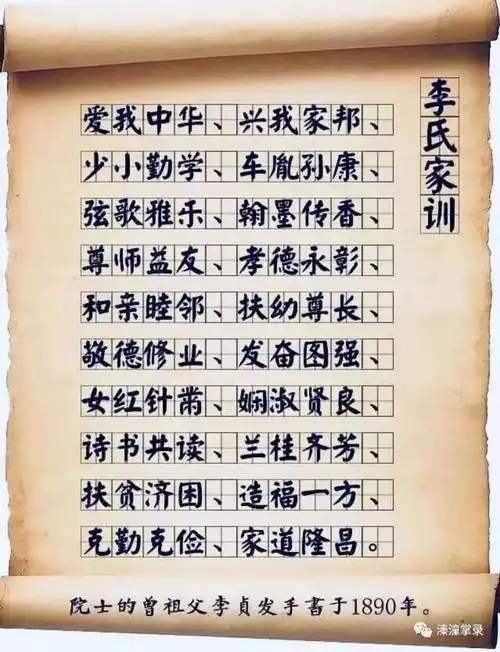 李氏家训
爱我中华、兴我家邦、
少小勤学、车胤孙康、
弦歌雅乐、翰墨传香、
尊师益友、孝德永彰、
和亲睦邻、扶幼尊长、
敬德修业、发奋图强、
女红针黹、娴淑贤良、
诗书共读、兰桂齐芳、
扶贫济困、造福一方、
克勤克俭、家道隆昌。
院士的曾祖父李贞发手书于1890年。
溱潼掌录